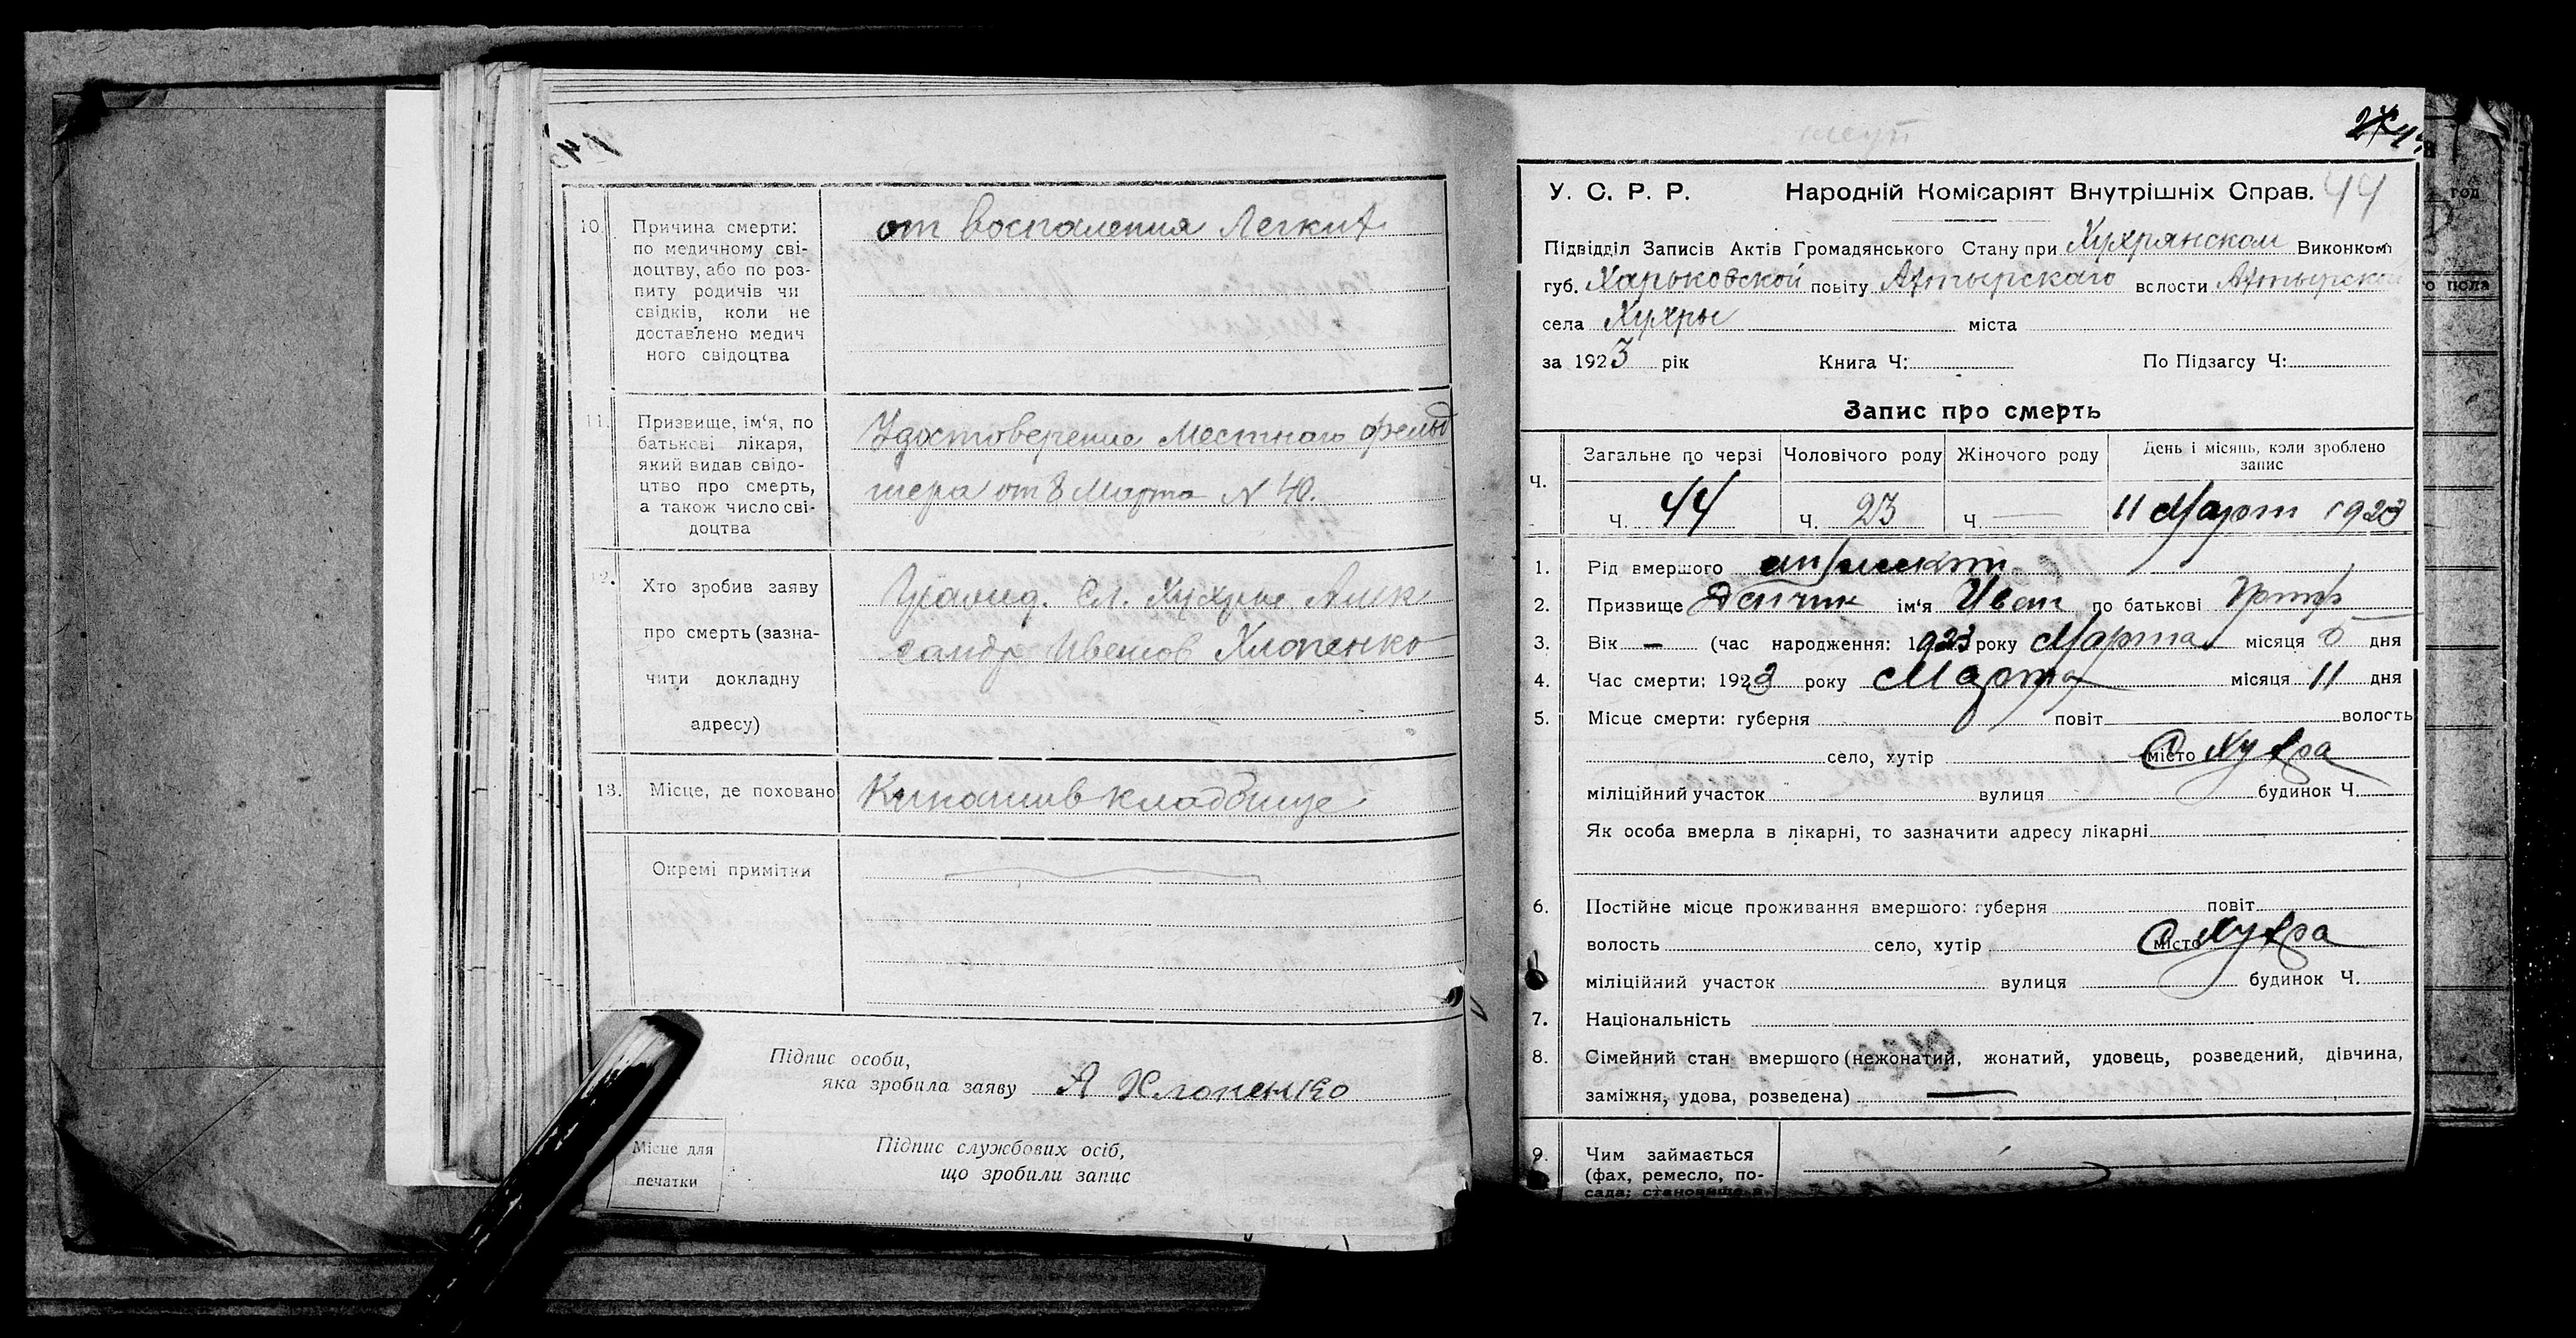 10.
Причина смерти:
по медичному сві-
доцтву, або по роз-
питу родичів чи
свідків, коли не
доставлено медич
ного свідоцтва
от воспаления Легких
11.
Призвище, ім‘я, по
батькові лікаря,
який видав свідо-
цтво про смерть,
а також число сві-
доцтва
Удостоверение Местнаго фельд
шера от 8 Марта N 40.
12.
Хто зробив заяву
про смерть (зазна-
чити докладну
адресу)
Гражд. Сл. Хухры Алек
сандр Иванов Хлопенко
13.
Місце, де поховано
кладбище
Окремі примітки
Підпис особи,
яка зробила заяву А Хлопенко
Місце для
печатки
Підпис службових осіб,
що зробили запис
44
У. С. Р. Р. Народній Комісаріят Внутрішніх Справ. 44
Підвідділ Записів Актів Громадянського Стану при Хухрянском Виконком
губ. Харьковской повіту Ахтырскаго вслости Ахтырской
села Хухры міста
за 1923 рік Книга Ч: По Підзагсу Ч:
Запис про смерть
Ч.
Загальне по черзі Чоловічого роду Жіночого роду День і місяць, коли зроблено
запис
Ч. 44 Ч. 23 Ч. — 11 Март 1923
1. Рід вмершого
2. Призвище ім‘я Иван по батькові
3. Вік — (час народження: 1923 року Марта місяця дня
4. Час смерти: 1923 року Марта місяця 11 дня
5. Місце смерти: губерня повіт волость
село, хутір місто Хухра
міліційний участок вулиця будинок Ч.
Як особа вмерла в лікарні, то зазначити адресу лікарні
6. Постійне місце проживання вмершого: губерня повіт
волость село, хутір місто Хухра
міліційний участок вулиця будинок Ч.
7. Національність
8. Сімейний стан вмершого (нежонатий, жонатий, удовець, розведений, дівчина,
заміжня, удова, розведена) —
9. Чим займається
(фах, ремесло, по-
сада; становище в